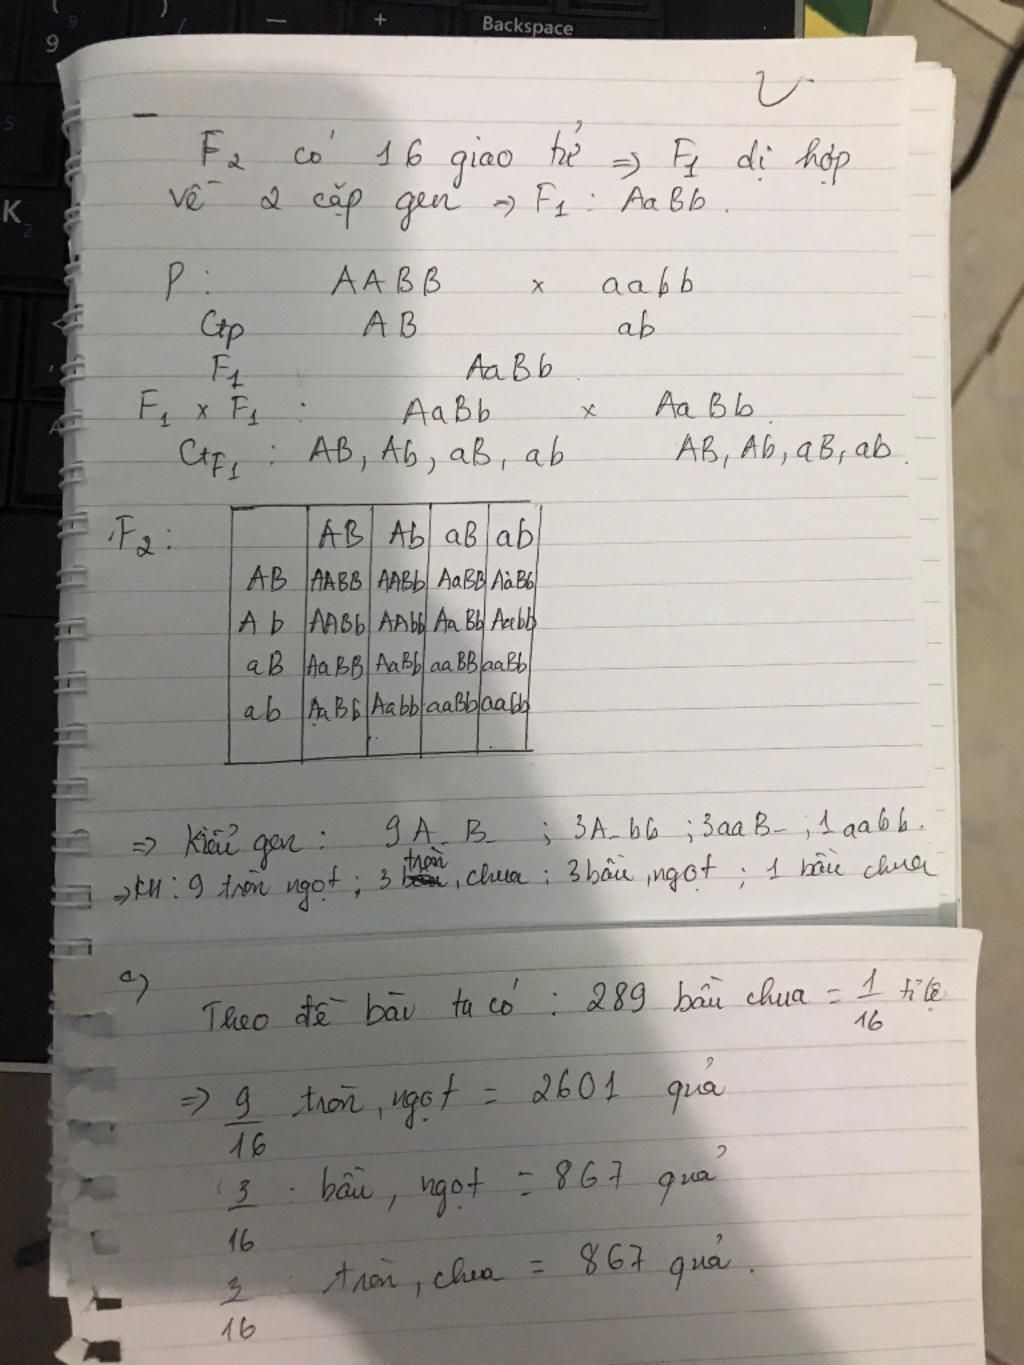 9
Backspace
+
5
K
2
F2 có 16 giao tử => F1 dị hợp
về 2 cặp gen => F1 : AaBb.
P : AABB x aabb
Gtp AB ab
F1 AaBb.
F1 x F1 : AaBb x AaBb.
GtF1 : AB, Ab, aB, ab AB, Ab, aB, ab.
F2 :
AB Ab aB ab
AB AABB AABb AaBB AaBb
Ab AABb AAbb AaBb Aabb
aB AaBB AaBb aaBB aaBb
ab AaBb Aabb aaBb aabb
=> Kiểu gen : 9 A_B_ ; 3A_bb ; 3aaB_ ; 1 aabb.
=> KH : 9 tròn ngọt ; 3 tròn, chua ; 3 bầu, ngọt ; 1 bầu chua
c)
Theo đề bài ta có : 289 bầu chua = 1/16 tỉ lệ
=> 9/16 tròn, ngọt = 2601 quả
3/16 : bầu, ngọt = 867 quả
3/16 : tròn, chua = 867 quả.